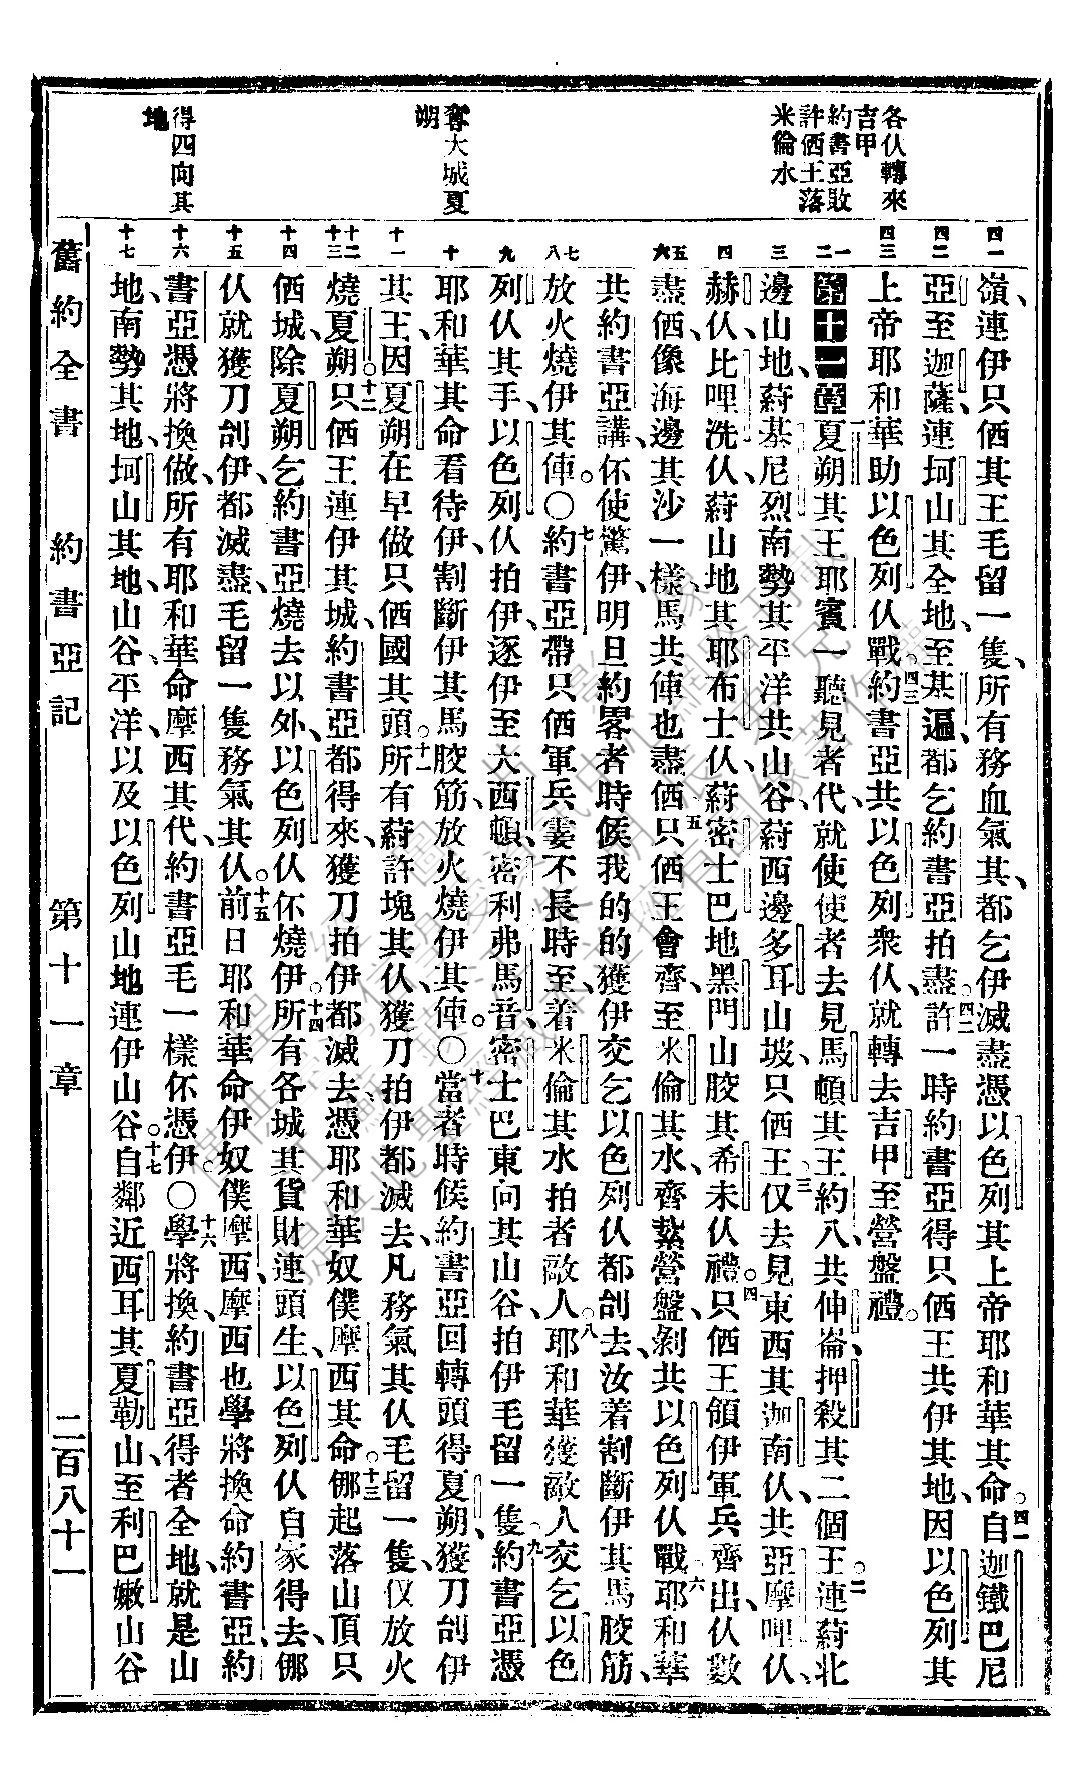 各仈轉來
吉甲
約書亞敗
許倆王落
米倫水
奪大城夏
朔
得四向其
地
四一
四二
四三
一
二
三
四
五
六
七
八
九
十
十一
十二
十三
十四
十五
十六
十七
嶺、連伊只倆其王毛留一隻、所有務血氣其、都乞伊滅盡憑以色列其上帝耶和華其命。四一自迦鐵巴尼
亞至迦薩、連坷山其全地、至基遍、都乞約書亞拍盡。四二許一時約書亞得只倆王共伊其地、因以色列其
上帝耶和華助以色列仈戰。四三約書亞共以色列衆仈、就轉去吉甲至營盤禮。
第十一章 一夏朔其王耶賓一聽見者代、就使使者去見馬頓其王、約八共伸崙、押殺其二個王。二連葤北
邊山地、葤基尼烈南勢其平洋共山谷、葤西邊多耳山坡、只倆王仅去見。三東西其迦南仈共亞摩哩仈、
赫仈、比哩洗仈、葤山地其耶布士仈、葤密士巴地黑門山胶其希未仈禮。四只倆王領伊軍兵齊出、仈數
盡倆、像海邊其沙一樣、馬共俥也盡倆。五只倆王會齊、至米倫其水、齊紮營盤、剁共以色列仈戰。六耶和華
共約書亞講、伓使驚伊、明旦約畧者時候、我的的獲伊交乞以色列仈都刣去、汝着割斷伊其馬胶筋、
放火燒伊其俥。○七約書亞帶只倆軍兵、霎不長時、至着米倫其水、拍者敵人。八耶和華獲敵人交乞以色
列仈其手、以色列仈拍伊、逐伊至大西頓、密利弗馬音、密士巴東向其山谷、拍伊毛留一隻。九約書亞憑
耶和華其命看待伊、割斷伊其馬胶筋、放火燒伊其俥。○十當者時候、約書亞回轉頭得夏朔、獲刀刣伊
其王、因夏朔在早做只倆國其頭。十一所有葤許塊其仈、獲刀拍伊都滅去、凡務氣其仈毛留一隻、仅放火
燒夏朔。十二只倆王連伊其城、約書亞都得來、獲刀拍伊都滅去、憑耶和華奴僕摩西其命。十三㑚起落山頂只
倆城、除夏朔、乞約書亞燒去以外、以色列仈伓燒伊。十四所有各城其貨財連頭生、以色列仈自家得去、㑚
仈就獲刀刣伊都滅盡、毛留一隻務氣其仈。十五前日耶和華命伊奴僕摩西、摩西也學將換命約書亞、約
書亞憑將換做、所有耶和華命摩西其代、約書亞毛一樣伓憑伊。○十六學將換、約書亞得者全地、就是山
地、南勢其地、坷山其地、山谷、平洋、以及以色列山地連伊山谷。十七自鄰近西耳其夏勒山、至利巴嫩山谷
舊約全書 約書亞記 第十一章 二百八十一